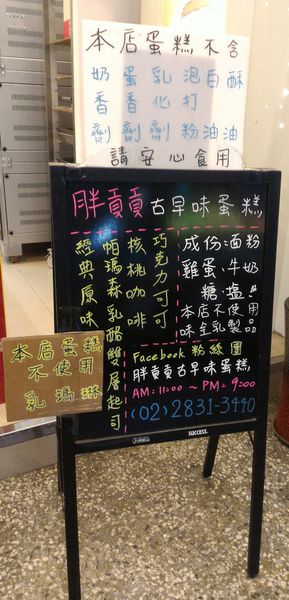 本店蛋糕不含
奶香劑
蛋香劑
乳化劑
泡打粉
白油
酥油
請安心食用
胖貢貢古早味蛋糕
經典原味
帕瑪森乳酪雙層起司
核桃咖啡
巧克力可可
成份:面粉
雞蛋、牛奶
糖、塩!!
本店不使用
味全乳製品
Facebook 粉絲團
胖貢貢古早味蛋糕
AM:11:00 ~ PM:9:00
(02)2831-3440
本店蛋糕
不使用
乳瑪琳
SUCCESS.